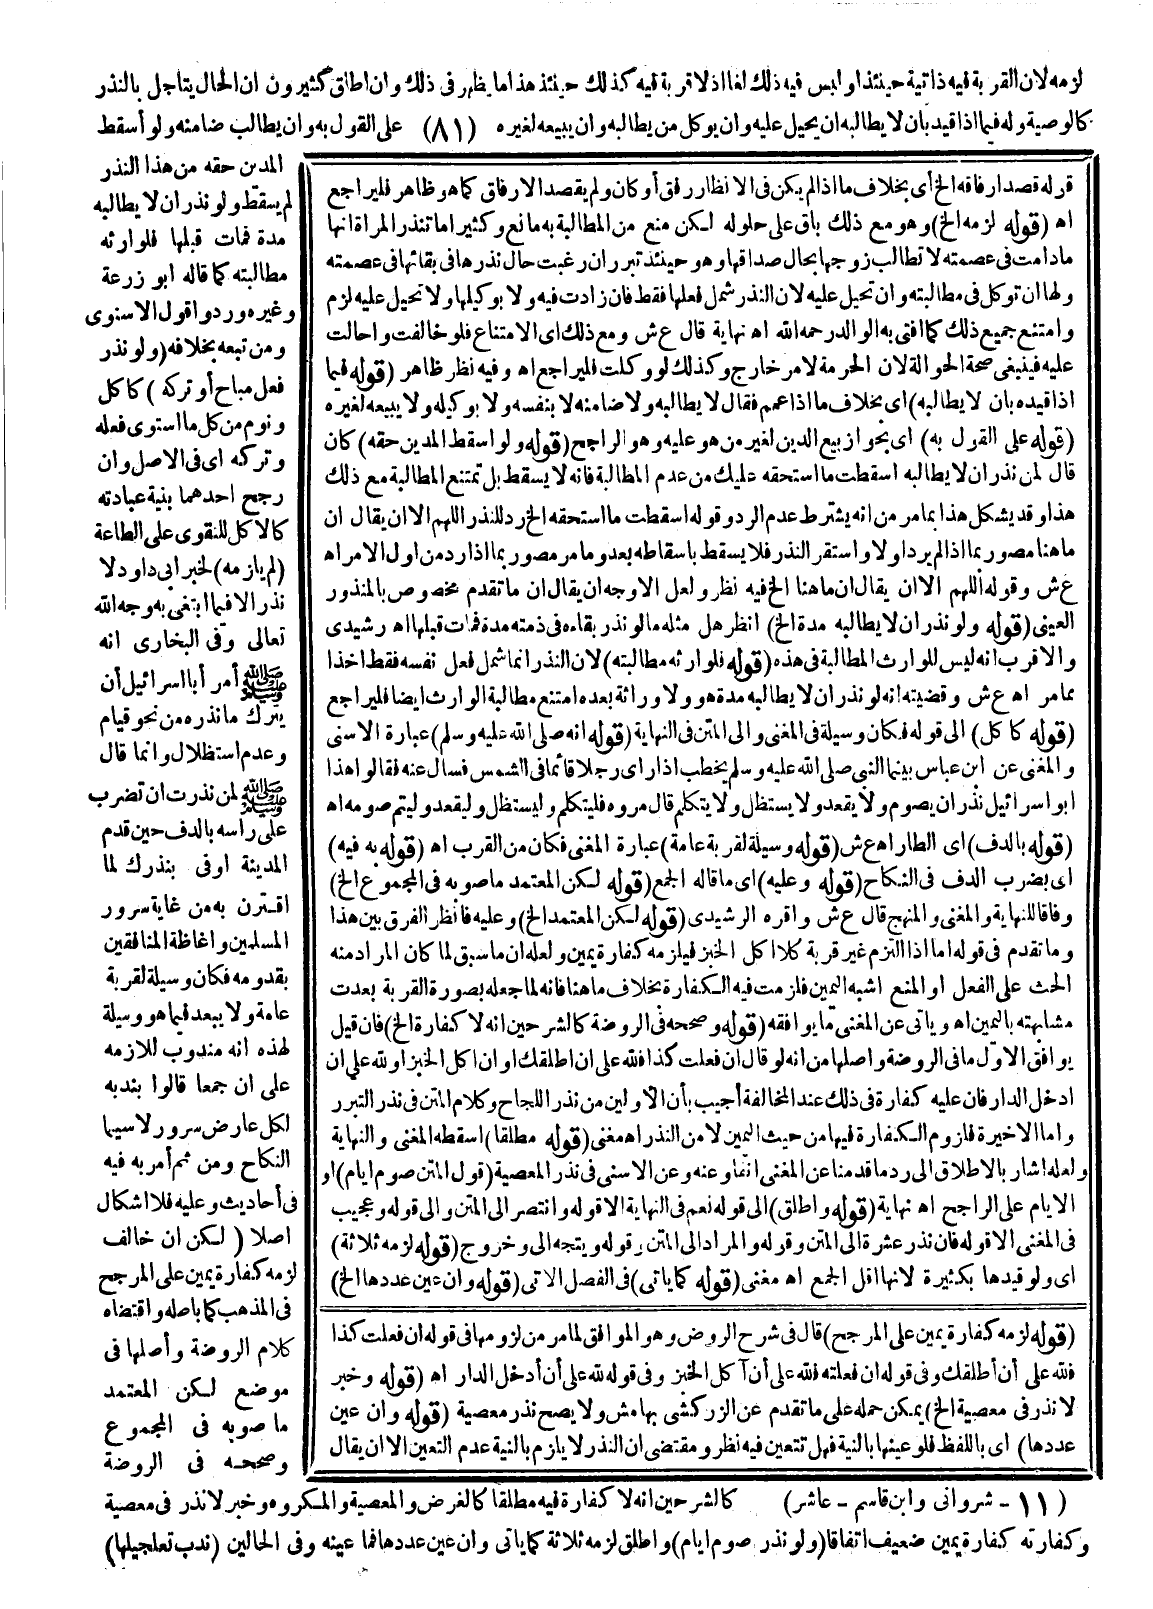 لزمه لان القربة فيه ذاتية حينئذ او ليس فيه ذلك لغا اذ لا قربة فيه كذلك حينئذ هذا ما يظهر فى ذلك وان اطلق كثيرون ان الحال يتأجل بالنذر
كالوصية وله فيما اذا قيد بأن لا يطالبه ان يحيل عليه وان يوكل من يطالبه وان يبيعه لغيره (٨١) على القول به وان يطالب ضامنه ولو أسقط
المدين حقه من هذا النذر
لم يسقط ولو نذر ان لا يطالبه
مدة فمات قبلها فلوارثه
مطالبته كما قاله ابو زرعة
وغيره وردوا قول الاسنوى
ومن تبعه بخلافه (ولو نذر
فعل مباح أو تركه) كاكل
ونوم من كل ما استوى فعله
وتركه اى فى الاصل وان
رجح احدهما بنية عبادته
كالاكل للتقوى على الطاعة
(لم يلزمه) لخبر ابى داود لا
نذر الا فيما ابتغى به وجه الله
تعالى وفى البخارى انه
ﷺ أمر أبا اسرائيل أن
يترك ما نذره من نحو قيام
وعدم استظلال وانما قال
ﷺ لمن نذرت ان تضرب
على راسه بالدف حين قدم
المدينة اوفى بنذرك لما
اقترن به من غاية سرور
المسلمين واغاظة المنافقين
بقدومه فكان وسيلة لقربة
عامة ولا يبعد فيما هو وسيلة
لهذه انه مندوب للازمه
على ان جمعا قالوا بندبه
لكل عارض سرور لا سيما
النكاح ومن ثم أمر به فيه
فى أحاديث وعليه فلا اشكال
اصلا (لكن ان خالف
لزمه كفارة يمين على المرجح
فى المذهب كما باصله واقتضاه
كلام الروضة وأصلها فى
موضع لكن المعتمد
ما صوبه فى المجموع
وصححه فى الروضة
قوله قصد ارفاقه الخ أى بخلاف ما اذا لم يكن فى الانظار رفق أو كان ولم يقصد الارفاق كما هو ظاهر فليراجع
اه (قوله لزمه الخ) وهو مع ذلك باق على حلوله لكن منع من المطالبة به مانع وكثيرا ما تنذر المراة انها
ما دامت فى عصمته لا تطالب زوجها بحال صداقها وهو حينئذ تبرر ان رغبت حال نذرها فى بقائها فى عصمته
ولها ان توكل فى مطالبته وان تحيل عليه لان النذر شمل فعلها فقط فان زادت فيه ولا بوكيلها ولا تحيل عليه لزم
وامتنع جميع ذلك كما افتى به الوالد رحمه الله اه نهاية قال ع ش ومع ذلك اى الامتناع فلو خالفت واحالت
عليه فينبغى صحة الحوالة لان الحرمة لامر خارج وكذلك لو وكلت فليراجع اه وفيه نظر ظاهر (قوله فيما
اذا قيده بان لا يطالبه) اى بخلاف ما اذا عمم فقال لا يطالبه ولا ضامنه لا بنفسه ولا بوكيله ولا يبيعه لغيره
(قوله على القول به) اى بجواز بيع الدين لغير من هو عليه وهو الراجح (قوله ولو اسقط المدين حقه) كان
قال لمن نذر ان لا يطالبه اسقطت ما استحقه عليك من عدم المطالبة فانه لا يسقط بل تمتنع المطالبة مع ذلك
هذا وقد يشكل هذا بما مر من انه يشترط عدم الرد وقوله اسقطت ما استحقه الخ رد للنذر اللهم الا ان يقال ان
ما هنا مصور بما اذا لم يرد اولا واستقر النذر فلا يسقط باسقاطه بعد وما مر مصور بما اذا رد من اول الامر اه
ع ش وقوله اللهم الا ان يقال ان ما هنا الخ فيه نظر ولعل الاوجه ان يقال ان ما تقدم مخصوص بالمنذور
العينى (قوله ولو نذر ان لا يطالبه مدة الخ) انظر هل مثله ما لو نذر بقاءه فى ذمته مدة فمات قبلها اه رشيدى
والاقرب انه ليس للوارث المطالبة فى هذه (قوله فلوارثه مطالبته) لان النذر انما شمل فعل نفسه فقط اخذا
مما مر اه ع ش وقضيته انه لو نذر ان لا يطالبه مدة هو ولا وراثة بعده امتنع مطالبة الوارث ايضا فليراجع
(قوله كاكل) الى قوله فكان وسيلة فى المغنى والى المتن فى النهاية (قوله انه صلى الله عليه وسلم) عبارة الاسنى
والمغنى عن ابن عباس بينما النبى صلى الله عليه وسلم يخطب اذ راى رجلا قائما فى الشمس فسال عنه فقالوا هذا
ابو اسرائيل نذر ان يصوم ولا يقعد ولا يستظل ولا يتكلم قال مروه فليتكلم وليستظل وليقعد وليتم صومه اه
(قوله بالدف) اى الطار اه ع ش (قوله وسيلة لقربة عامة) عبارة المغنى فكان من القرب اه (قوله به فيه)
اى بضرب الدف فى النكاح (قوله وعليه) اى ما قاله الجمع (قوله لكن المعتمد ما صوبه فى المجموع الخ)
وفاقا للنهاية والمغنى والمنهج قال ع ش واقره الرشيدى (قوله لكن المعتمد الخ) وعليه فانظر الفرق بين هذا
وما تقدم فى قوله اما اذا التزم غير قربة كلا اكل الخبز فيلزمه كفارة يمين ولعله ان ما سبق لما كان المراد منه
الحث على الفعل او المنع اشبه اليمين فلزمت فيه الكفارة بخلاف ما هنا فانه لما جعله بصورة القربة بعدت
مشابهته باليمين اه وياتى عن المغنى ما يوافقه (قوله وصححه فى الروضة كالشرحين انه لا كفارة الخ) فان قيل
يوافق الاول ما فى الروضة واصلها من انه لو قال ان فعلت كذا فلله على ان اطلقك او ان اكل الخبز او لله على ان
ادخل الدار فان عليه كفارة فى ذلك عند المخالفة أجيب بأن الاولين من نذر اللجاج وكلام المتن فى نذر التبرر
واما الاخيرة فلزوم الكفارة فيها من حيث اليمين لا من النذر اه مغنى (قوله مطلقا) اسقطه المغنى والنهاية
ولعله اشار بالاطلاق الى رد ما قدمنا عن المغنى انفا وعنه وعن الاسنى فى نذر المعصية (قول المتن صوم ايام) او
الايام على الراجح اه نهاية (قوله واطلق) الى قوله نعم فى النهاية الا قوله وانتصر الى المتن والى قوله وعجيب
فى المغنى الا قوله فان نذر عشرة الى المتن وقوله والمراد الى المتن وقوله ويتجه الى وخروج (قوله لزمه ثلاثة)
اى ولو قيدها بكثيرة لانها اقل الجمع اه مغنى (قوله كما ياتى) فى الفصل الاتى (قوله وان عين عددها الخ)
(قوله لزمه كفارة يمين على المرجح) قال فى شرح الروض وهو الموافق لما مر من لزومها فى قوله ان فعلت كذا
فلله على أن أطلقك وفى قوله ان فعلته فلله على أن آكل الخبز وفى قوله لله على أن أدخل الدار اه (قوله وخبر
لا نذر فى معصية الخ) يمكن حمله على ما تقدم عن الزركشى بهامش ولا يصح نذر معصية (قوله وان عين
عددها) اى باللفظ فلو عينها بالنية فهل تتعين فيه نظر ومقتضى ان النذر لا يلزم بالنية عدم التعين الا ان يقال
(١١ - شروانى وابن قاسم - عاشر) كالشرحين انه لا كفارة فيه مطلقا كالفرض والمعصية والمكروه وخبر لا نذر فى معصية
وكفارته كفارة يمين ضعيف اتفاقا (ولو نذر صوم ايام) واطلق لزمه ثلاثة كما ياتى وان عين عددها فما عينه وفى الحالين (ندب تعجيلها)